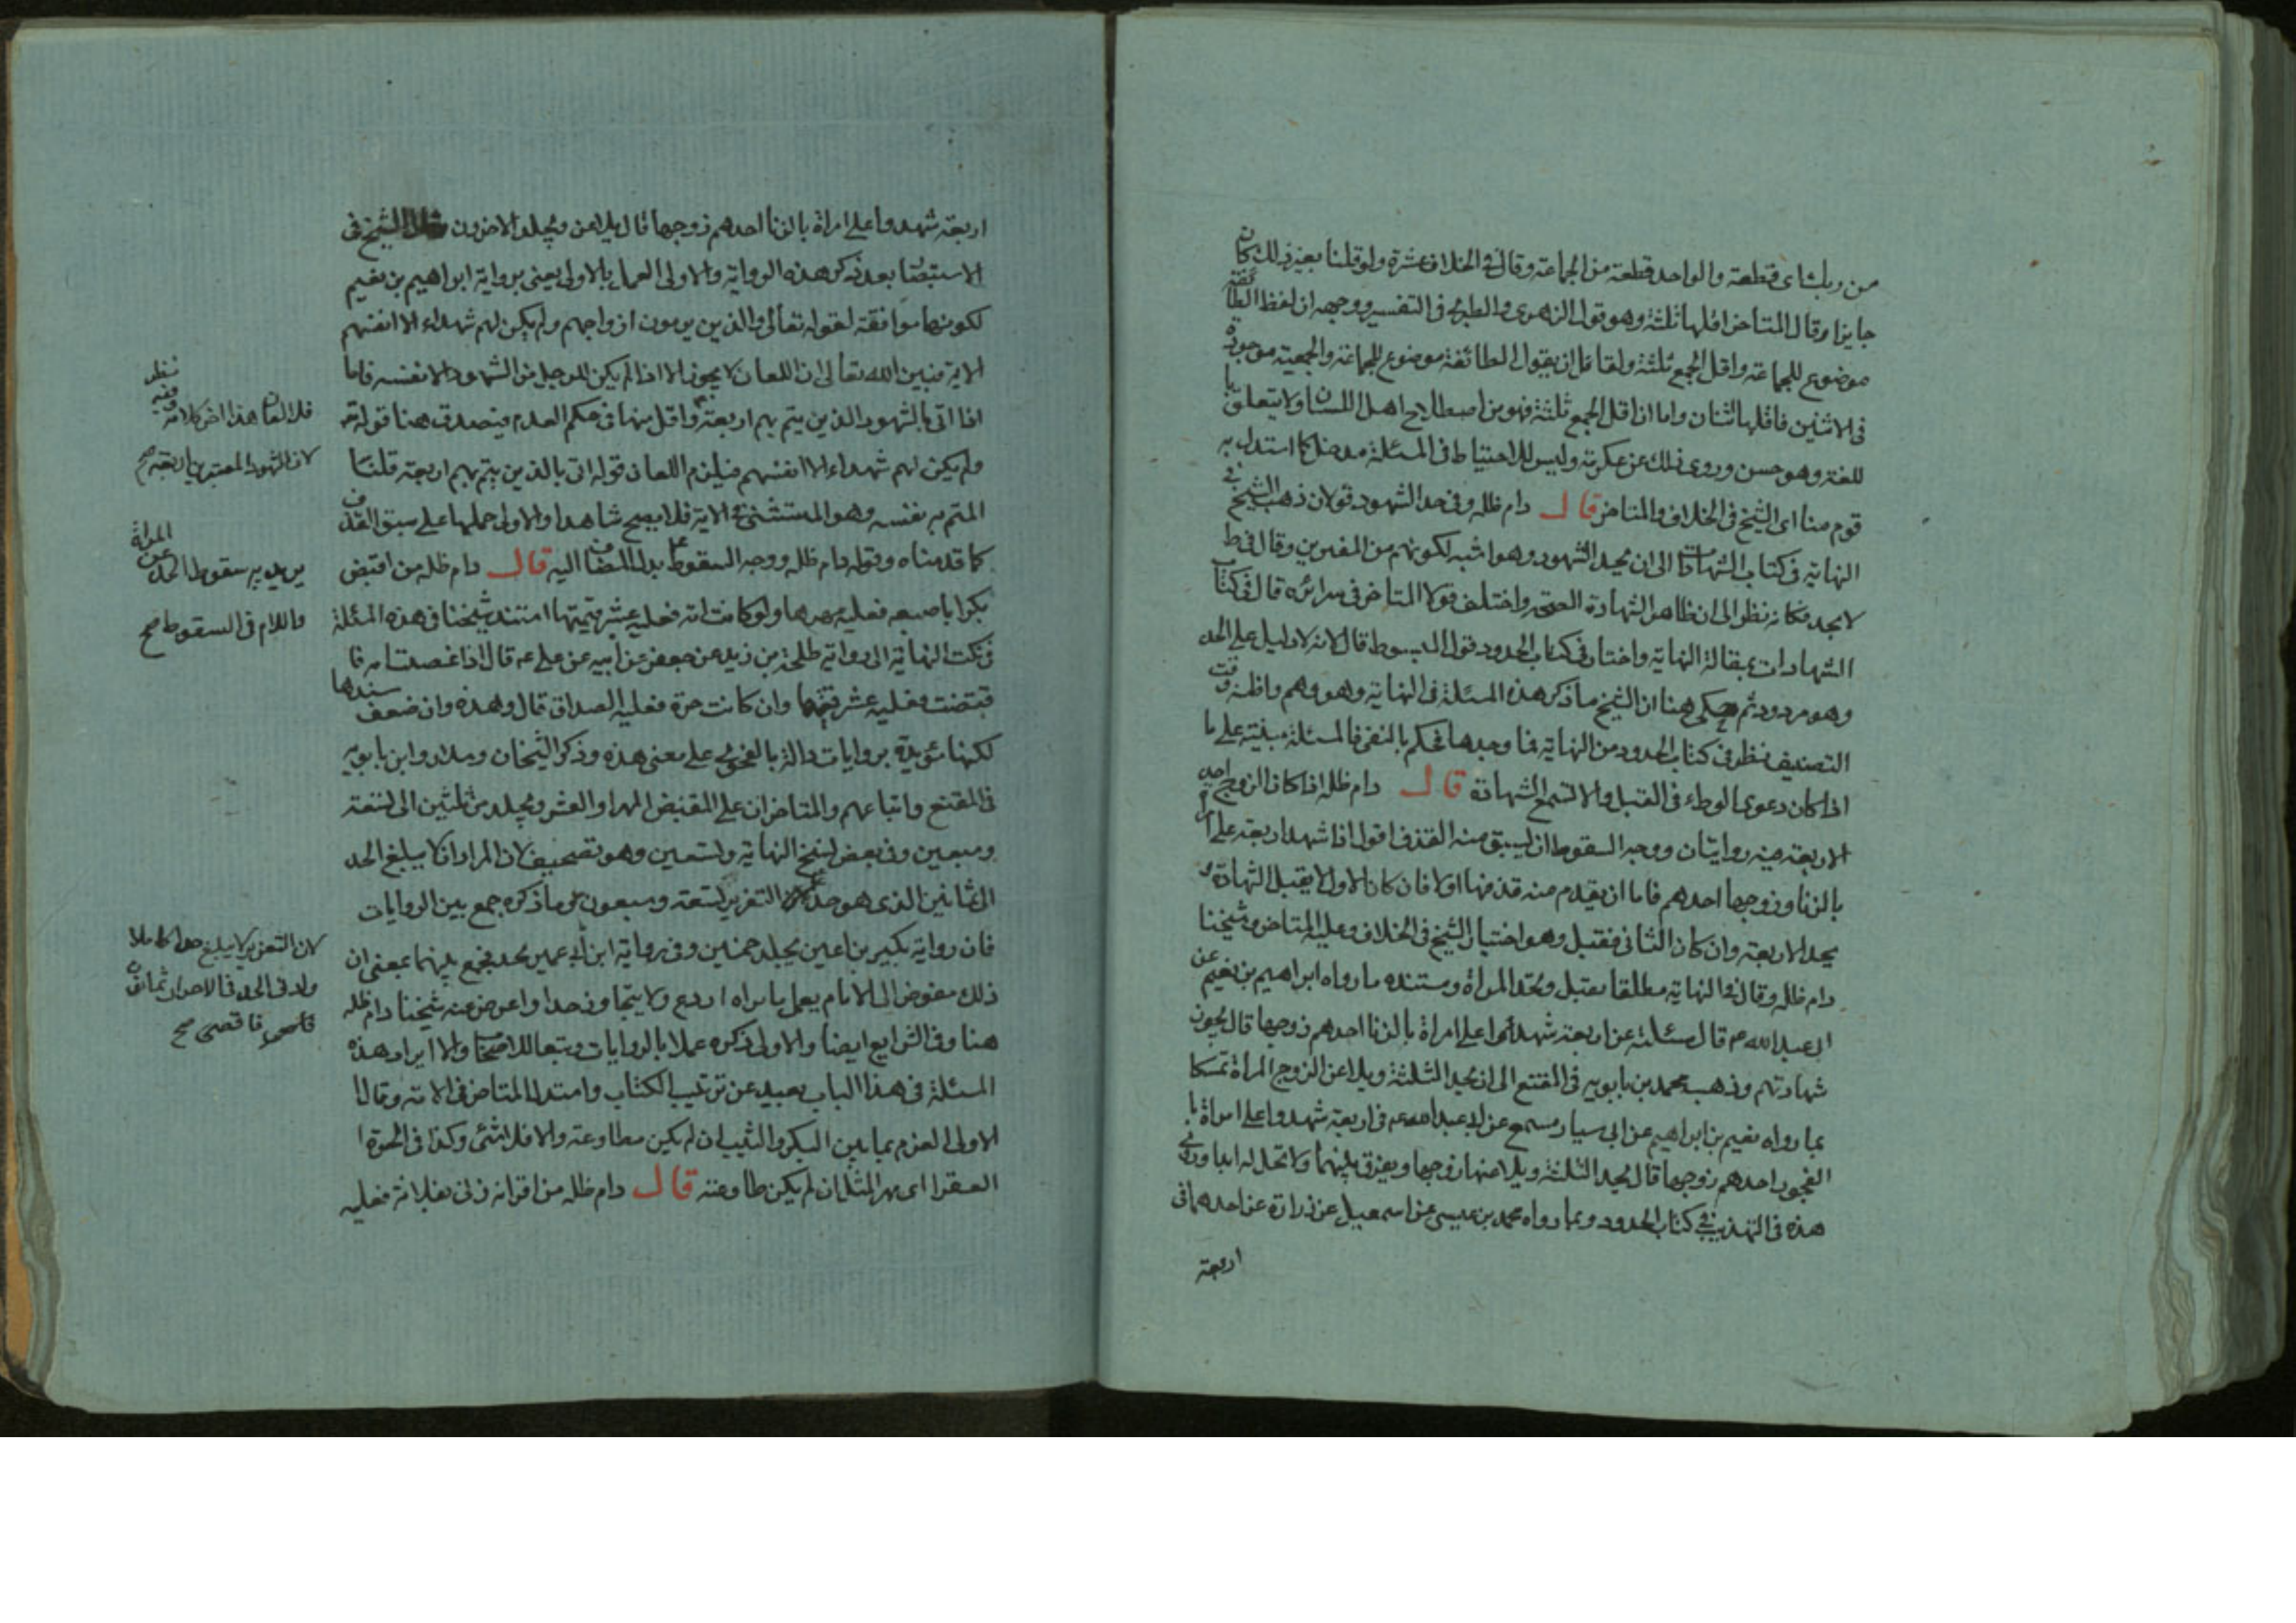 من ربك شاى قطعة والواحد قطعة من الجماعة وقال فى الخلاف عشرة ولو قلنا بغير ذلك كان
جايزا وقال المتاخر اقلها ثلثة وهو قول الزهرى والطبرى فى التفسير ووجهه ان لفظ الطائفة
موضوع للجماعة واقل الجمع ثلثة ولقائل ان يقول الطائفة موضوع للجماعة والجمعية موجودة
فى الاثنين فاقلها اثنان واما ان اقل الجمع ثلثة فهو من اصطلاح اهل اللسان ولا يتعلق با
للغة وهو حسن وروى ذلك عن عكرمة وليس للاحتياط فى المسئلة مدخل كما استدل به
قوم منا اى الشيخ فى الخلاف والمتاخر قال دام ظله وفى حد الشهود قولان ذهب الشيخ فى
النهاية فى كتاب الشهادات الى ان يحد الشهود وهو اشبه لكونهم من المفترين وقال فى ط
لا يحد فكانه نظر الى ان ظاهر الشهادة الصحة واختلف قولا المتاخر فى سرائره قال فى كتاب
الشهادات بمقالة النهاية واختار فى كتاب الحدود قول المبسوط قال لانه لا دليل على الحد
وهو مردود ثم حكى هنا ان الشيخ ما ذكر هذه المسئلة فى النهاية وهو وهم واظنه وقت
التصنيف نظر فى كتاب الحدود من النهاية فما وجدها فحكم بالنفى فالمسئلة مبنية على ما
اذا كان دعوى الوطء فى القبل والا لتسمع الشهادة قال دام ظله اذا كان الزوج احد
الاربعة فيه روايتان ووجه السقوط ان يسبق منه القذف اقول اذا شهد اربعة على امراة
بالزنا وزوجها احدهم فاما ان يقدم منه قذفها اولا فان كان الاول لا يقبل الشهادة و
يحد الاربعة وان كان الثانى فقبل وهو اختيار الشيخ فى الخلاف وعليه المتاخر وشيخنا
دام ظله وقال فى النهاية مطلقا تقبل وتحد المراة ومستنده ما رواه ابراهيم بن نعيم عن
ابى عبد الله ع قال سئلته عن اربعة شهدوا على امراة بالزنا احدهم زوجها قال يجوز
شهادتهم وذهب محمد بن بابويه فى المقنع الى ان يحد الثلثة ويلاعن الزوج المراة تمسكا
بما رواه نعيم بن ابراهيم عن ابى سيار مسمع عن ابى عبد الله ع فى اربعة شهدوا على امراة با
الفجور احدهم زوجها قال يحد الثلثة ويلاعنها زوجها ويفرق بينهما ولا تحل له ابدا وروى
هذه فى التهذيب فى كتاب الحدود وبما رواه محمد بن عيسى عن اسمعيل عن زرارة عن احدهما فى
اربعة
اربعة شهدوا على امراة بالزنا احدهم زوجها قال يلاعن ويجلد الاخرون قال الشيخ فى
الاستبصار بعد ذكر هذه الرواية والاولى العمل بالاولى يعنى برواية ابراهيم بن نعيم
لكونها موافقة لقوله تعالى والذين يرمون ازواجهم ولم يكن لهم شهداء الا انفسهم
الاية فبين الله تعالى ان اللعان لا يجوز الا اذا لم يكن للرجل من الشهود الا نفسه فاما
اذا اتى بالشهود الذين يتم بهم اربعة واقل منها فى حكم العدم فيصدق هنا قوله تع
ولم يكن لهم شهداء الا انفسهم فيلزم اللعان قوله اتى بالذين يتم بهم اربعة قلنا
المتم به نفسه وهو المستثنى فى الاية فلا يصح شاهدا والاولى حملها على سبق القذف
كما قدمناه وقوله دام ظله ووجه السقوط بدل المضاف اليه قال دام ظله من افتض
بكرا باصبعه فعليه مهرها ولو كانت امة فعليه عشر قيمتها استند شيخنا فى هذه المسئلة
فى نكت النهاية الى رواية طلحة بن زيد عن جعفر عن ابيه عن على ع قال اذا غصبت امه فا
فتضت فعليه عشر قيمتها وان كانت حرة فعليه الصداق قال وهذه وان ضعف سندها
لكنها مؤيدة بروايات دالة بالفحوى على معنى هذه وذكر الشيخان وسلار وابن بابويه
فى المقنع واتباعهم والمتاخر ان على المفتض المهر او العشر ويجلد من ثلثين الى تسعة
وسبعين وفى بعض نسخ النهاية وتسعين وهو تصحيف لان المراد ان لا يبلغ الحد
الى ثمانين الذى هو حد التعزير تسعة وسبعون ما ذكره جمع بين الروايات
فان رواية بكير بن اعين يجلد خمسين وفى رواية ابن ابى عمير يحد فجمع بينهما بمعنى ان
ذلك مفوض الى الامام يعمل بما يراه اردع ولا يتجاوز حدا واعرض عنه شيخنا دام ظله
هنا وفى الشرايع ايضا والاولى ذكره عملا بالروايات وتبعا للاصحاب والا ايراد هذه
المسئلة فى هذا الباب بعيد عن ترتيب الكتاب واستدل المتاخر فى الامة وقال ا
الاولى الغرم بما بين البكر والثيب ان لم يكن مطاوعة والا فلا شئ وكذا فى الحرة ا
العقر اى مهر المثل ان لم يكن طاوعته قال دام ظله من اقر انه زنى بفلانة فعليه
نظر
وفيه
فلا لعان هذا اخر كلامه
لان الشهود المعتبرين اربعة صح
المراة
يريد به سقوط الحد عن
واللام فى السقوط صح
لان التعزير لا يبلغ حدا كاملا
واد فى الحد فى الاحرار ثمانون
فاقصى صح